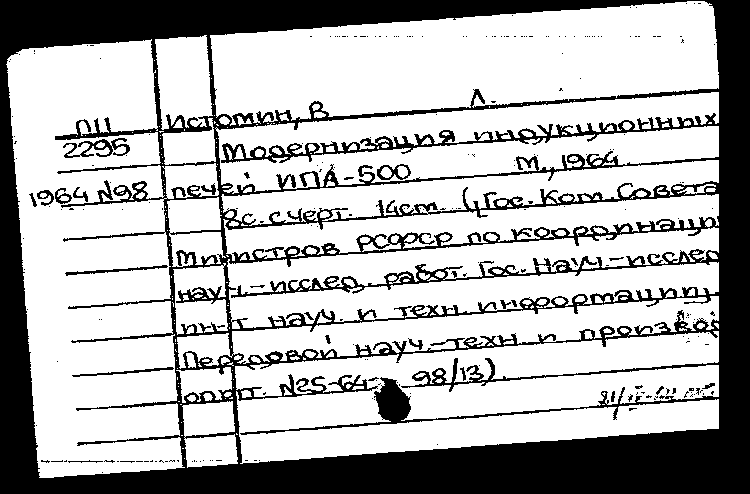 Л.
ПII Истомин, В
2295 Модернизация индукционных
1964 N98 печей ИПА-500. М., 1964.
8с. с черт. 14см. (Гос. Ком. Совета
Министров РСФСР по координаци
науч.-исслед. работ. Гос. Науч.-исслед
ин-т науч. и техн. информации.
Передовой науч.-техн. и производ
опыт. N25-64- 98/13).